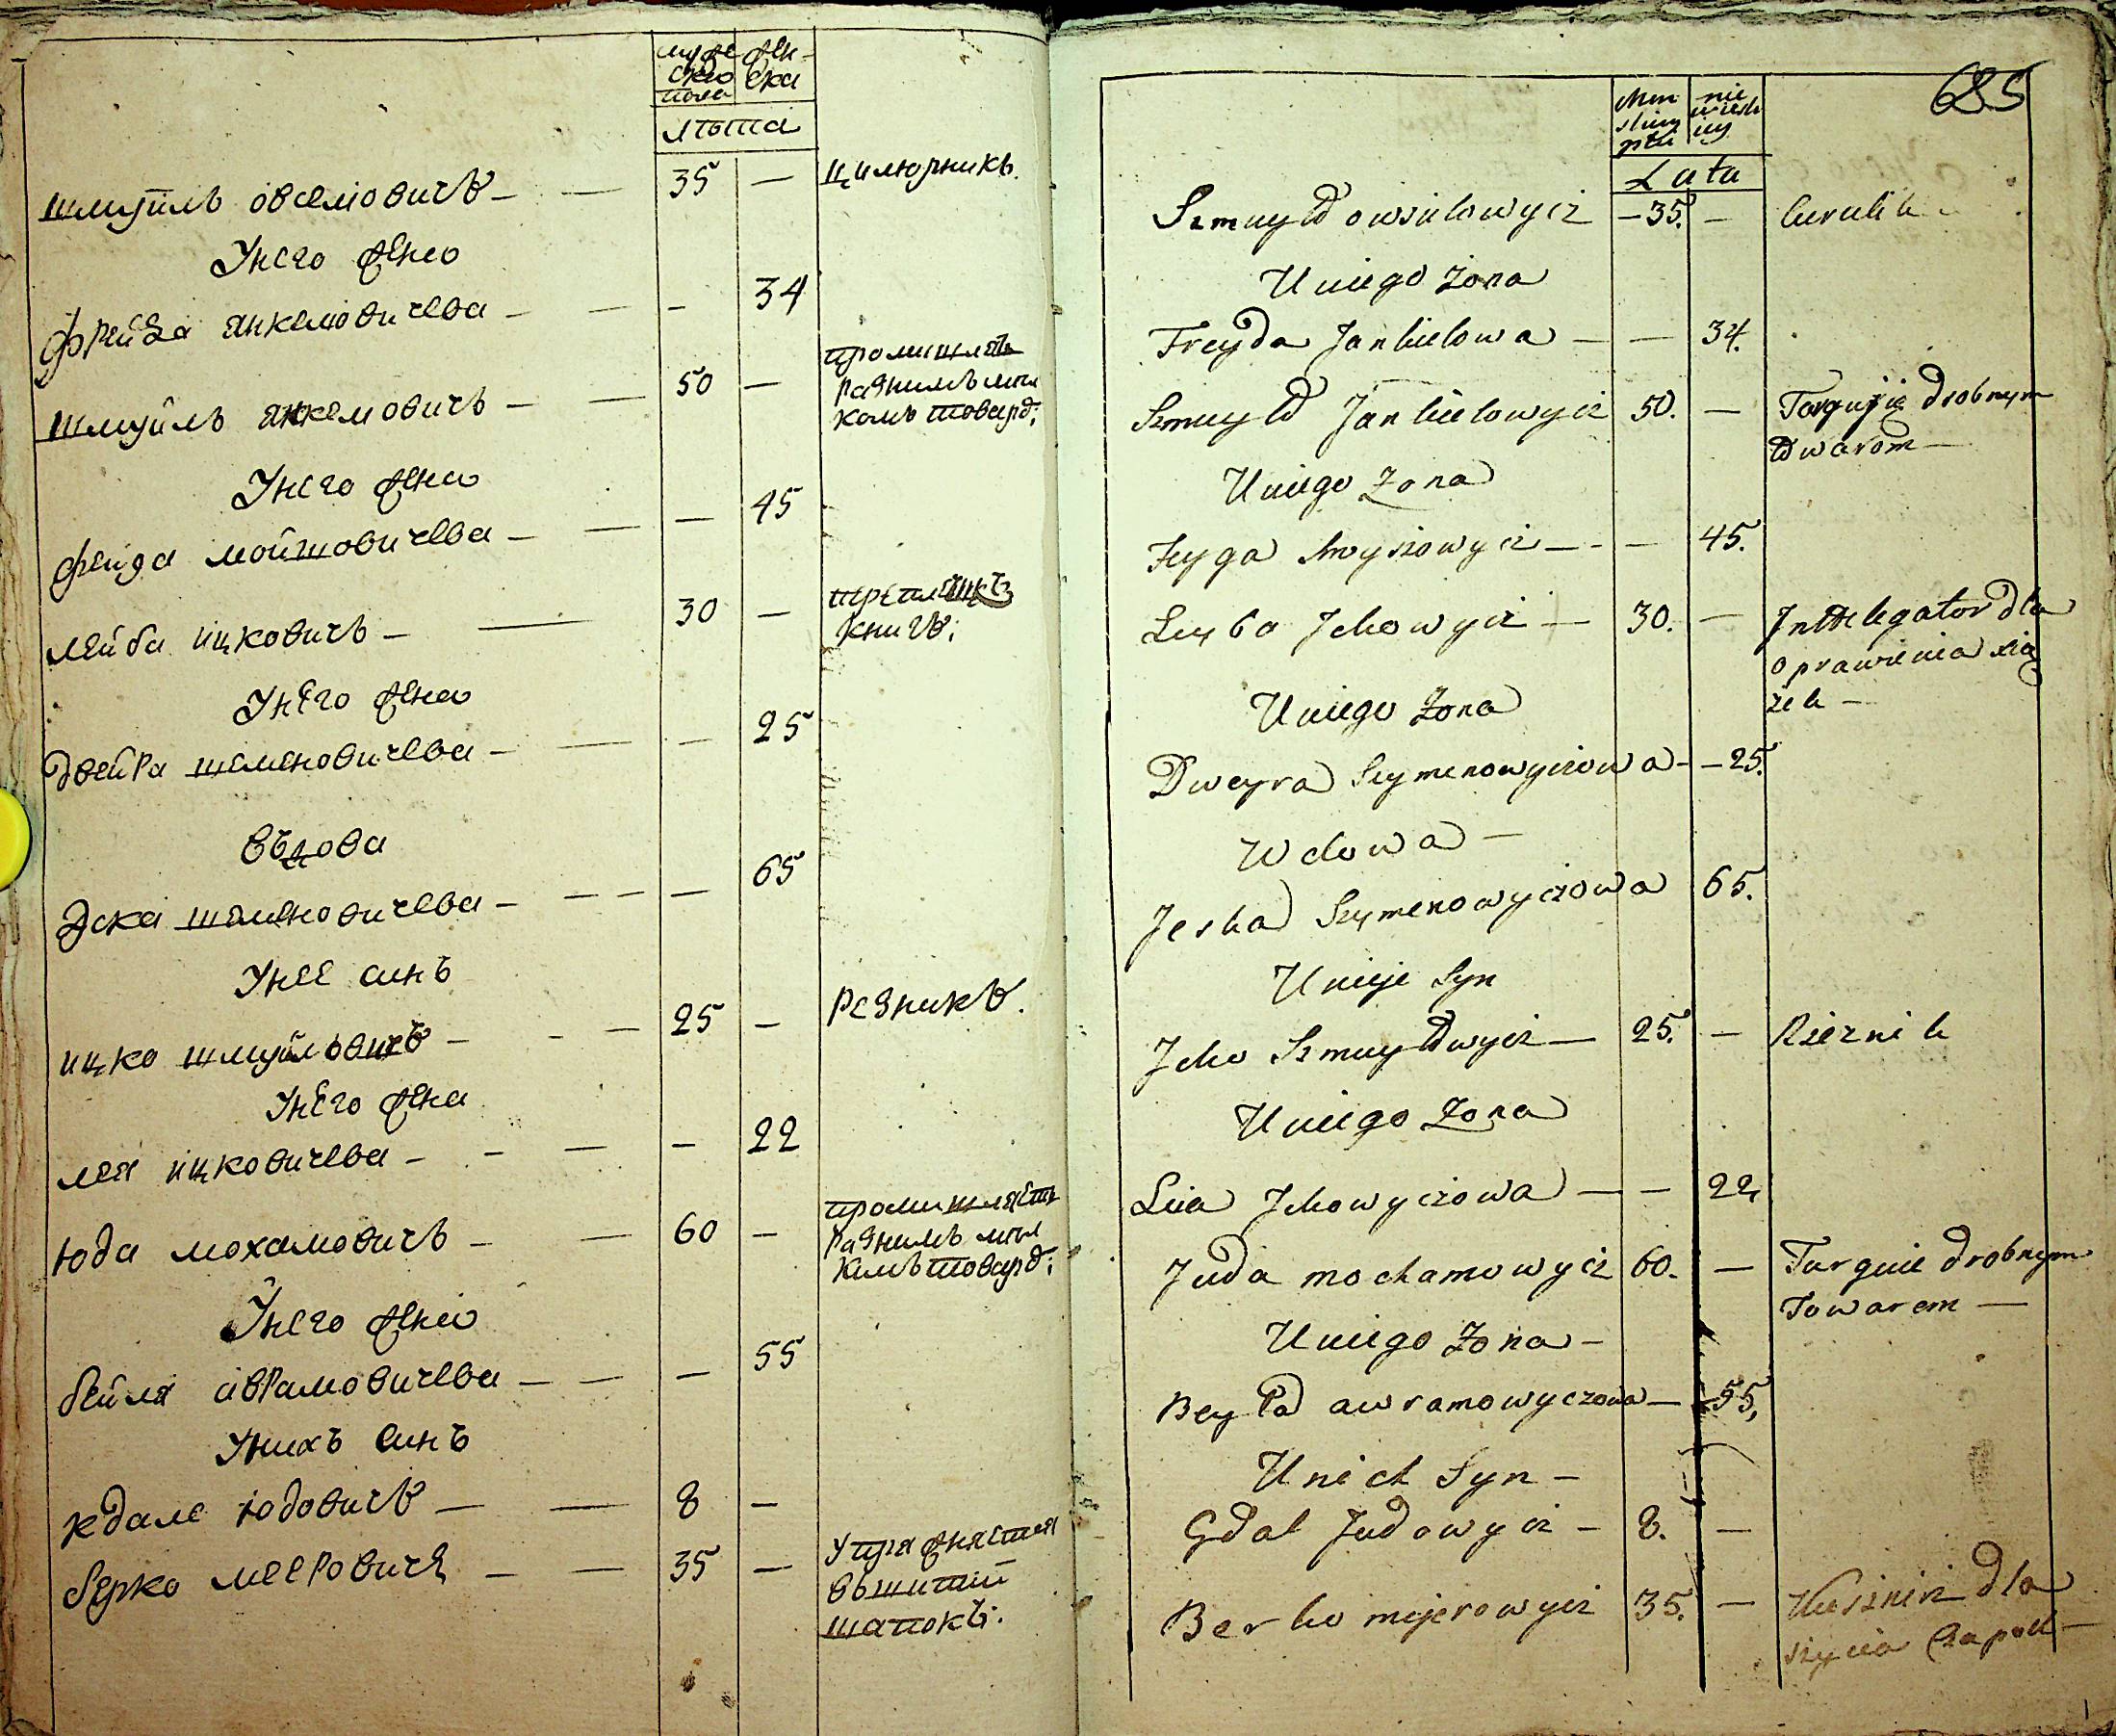 муже женска
ского
пола
лѣта
шмуйль овселiовичъ — — 35 — цилюрникъ.
Унего жена
фрейда янкелiовичева — — - 34
шмуйль янкелiовичъ — — 50 — промишляетъ
разнимъ мел
комъ товаро:
Унего жена
фейга мойшовичева — — — 45
лейба ицковичъ — — 30 — переплещикъ
книгъ:
Унего жена
двейра шеменовичева — — — 25
вдова
эска шеменовичева — — — 65
Унее синъ
ицко шмуйловичъ — — 25 — резникъ.
Унего жена
лея ицковичева — — — 22
юда мохамовичъ — — 60 — промишляетъ
разнимъ мел
кимъ товаро:
Унего жена
бейля аврамовичева — — — 55
Унихъ синъ
кдале юдовичъ — — 8 —
берко мееровичъ — — 35 — Упражняется
вьшитiи
шапокъ:
685
Men nie
skiey wieści
płci iey
Lata
Szmuyło owsielowycz — 35. — Cerulik
Uniego żona
Freyda Jankielowa — — 34.
Szmuylo Jankielowycz 50. — Targuije drobnym
towarom —
Uniego Żona
Feyga Moyszowycz — — 45.
Leyba Jckowycz — 30. — Jntrelegator dla
oprawienia xią
żek —
Uniego Żona
Dweyra Szymenowyczowa — — 25.
Wdowa —
Jeska Szymenowyczowa 65.
Unieje Syn
Jcko Szmuylowycz — 25. — Rzeznik
Uniego Żona
Leia Jckowyczowa — — 22,
Juda mochamowycz 60. — Targuie drobnym
Towarem —
Uniego Żona —
Beyla awramowyczowa — 55,
Unich Syn —
Gdal Judowycz — 8. —
Berko mejerowycz 35. — Kuśznierz dla
szycia Czapek —